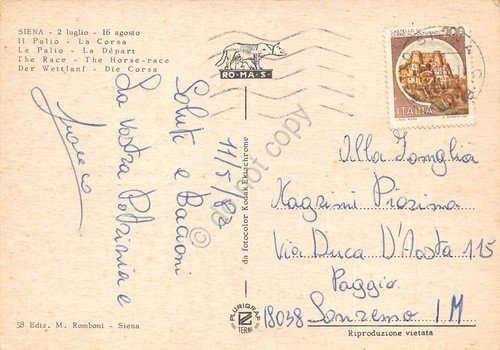 SIENA - 2 luglio - 16 agosto
Il Palio - La Corsa
Le Palio - La Départ
The Race - The Horse-race
Der Wettlanf - Die Corsa
RO·MA·S·
200
ITALIA
11/5/82
Saluti e Bacioni
La vostra Patrizia e
Franco
da fotocolor Kodak Ektachrome
do not copy
Alla Famiglia
Via Duca D'Aosta 115
Sanremo IM
18038
PLURIGRAF
TERNI
58 Ediz. M. Romboni - Siena
Riproduzione vietata